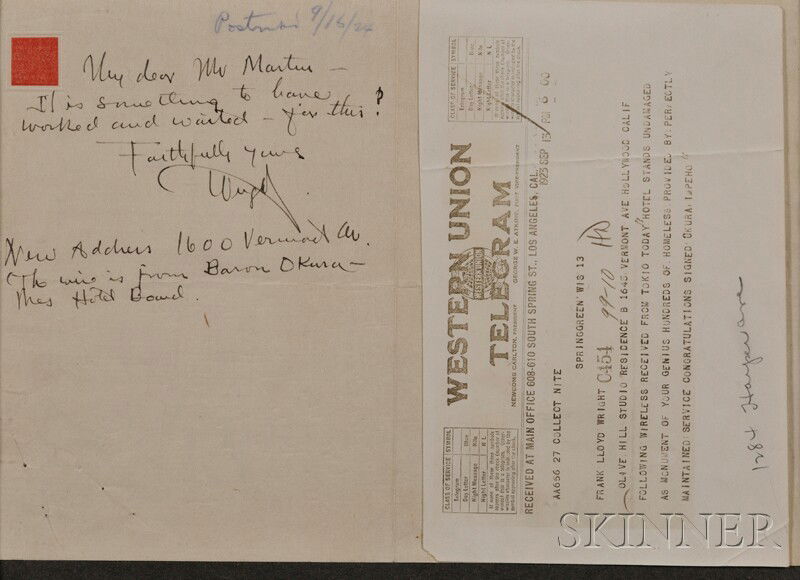 Postmark 9/16/24
My dear Mr Martin —
It is something to have
worked and waited — for this?
Faithfully yours
New Address 1600 Vermont Av.
The wire is from Baron Okura —
Hotel Board.
CLASS OF SERVICE SYMBOL
Telegram
Day Letter Blue
Night Message Nite
Night Letter N L
WESTERN UNION
TELEGRAM
WESTERN UNION
NEWCOMB CARLTON, PRESIDENT GEORGE W. E. ATKINS, FIRST VICE-PRESIDENT
CLASS OF SERVICE SYMBOL
Telegram
Day Letter Blue
Night Message Nite
Night Letter N L
RECEIVED AT MAIN OFFICE 608-610 SOUTH SPRING ST., LOS ANGELES, CAL.
1923 SEP 13 PM 6 00
AA656 27 COLLECT NITE
SPRINGGREEN WIS 13
FRANK LLOYD WRIGHT C454 99-10
OLIVE HILL STUDIO RESIDENCE B 1645 VERMONT AVE HOLLYWOOD CALIF
FOLLOWING WIRELESS RECEIVED FROM TOKIO TODAY HOTEL STANDS UNDAMAGED
AS MONUMENT OF YOUR GENIUS HUNDREDS OF HOMELESS PROVIDED BY PERFECTLY
MAINTAINED SERVICE CONGRATULATIONS SIGNED OKURA IMPEHO
SKINNER